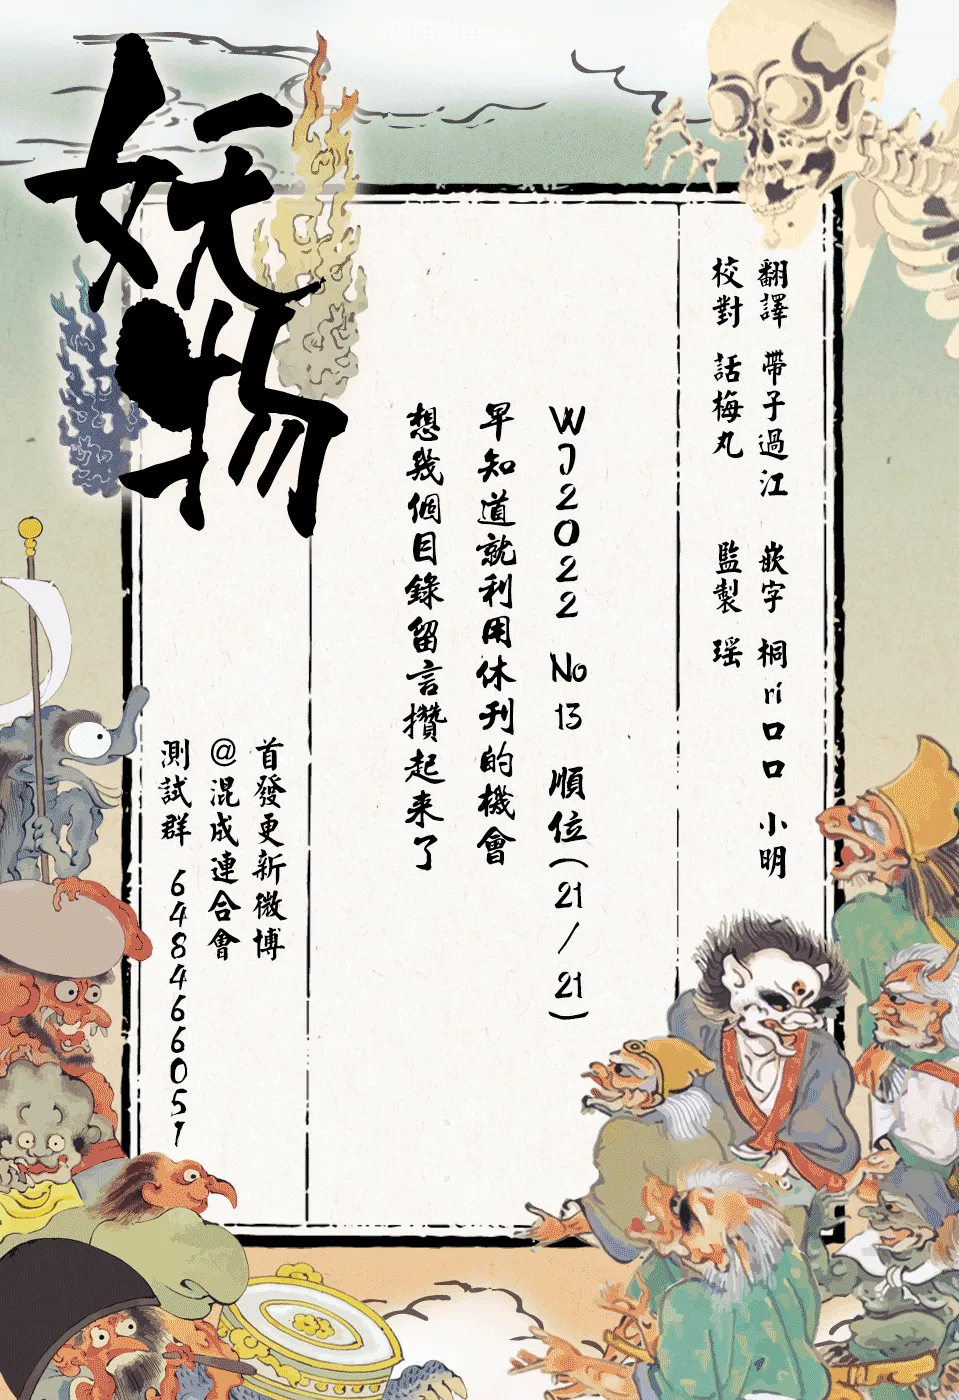 妖物
翻譯 帶子過江 嵌字 桐ri口口 小明
校對 話梅丸 監製 瑶
WJ2022 No13 順位(21/21)
早知道就利用休刊的機會
想幾個目錄留言攢起来了
首發更新微博
@混成連合會
測試群 648466051